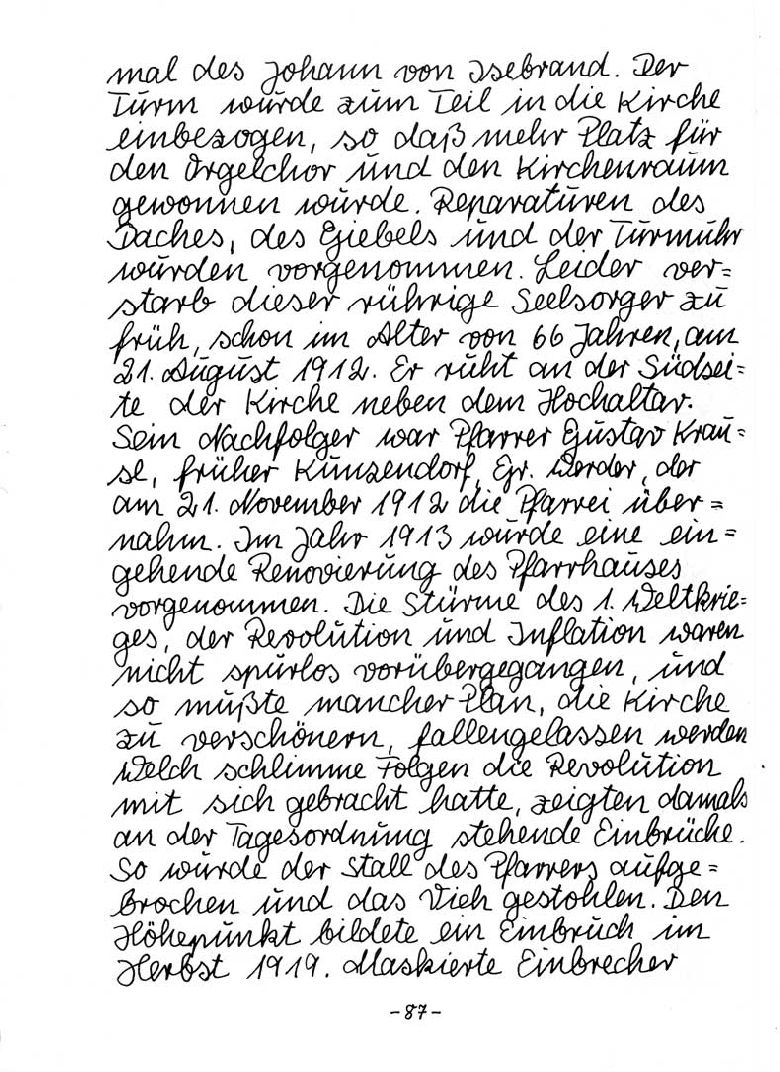 mal des Johann von Isebrand. Der
Turm wurde zum Teil in die Kirche
einbezogen, so daß mehr Platz für
den Orgelchor und den Kirchenraum
gewonnen wurde. Reparaturen des
Daches, des Giebels und der Turmuhr
wurden vorgenommen. Leider ver=
starb dieser rührige Seelsorger zu
früh, schon im Alter von 66 Jahren, am
21. August 1912. Er ruht an der Südsei=
te der Kirche neben dem Hochaltar.
Sein Nachfolger war Pfarrer Gustav Krau=
se, früher Kunzendorf, Gr. Werder, der
am 21. November 1912 die Pfarrei über=
nahm. Im Jahr 1913 wurde eine ein=
gehende Renovierung des Pfarrhauses
vorgenommen. Die Stürme des 1. Weltkrie=
ges, der Revolution und Inflation waren
nicht spurlos vorübergegangen, und
so mußte mancher Plan, die Kirche
zu verschönern, fallengelassen werden
Welch schlimme Folgen die Revolution
mit sich gebracht hatte, zeigten damals
an der Tagesordnung stehende Einbrüche.
So wurde der Stall des Pfarrers aufge=
brochen und das Vieh gestohlen. Den
Höhepunkt bildete ein Einbruch im
Herbst 1919. Maskierte Einbrecher
-87-